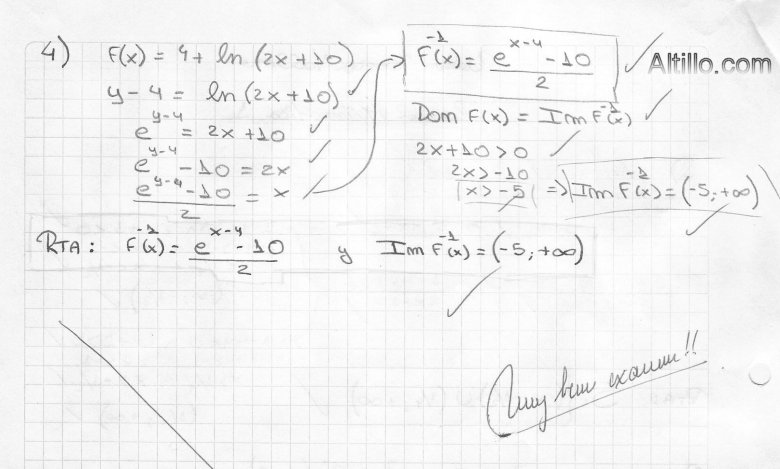 4) F(x) = 4 + ln (2x + 10)
y - 4 = ln (2x + 10)
e^{y-4} = 2x + 10
e^{y-4} - 10 = 2x
\frac{e^{y-4} - 10}{2} = x
F^{-1}(x) = \frac{e^{x-4} - 10}{2}
Altillo.com
Dom F(x) = Im F^{-1}(x)
2x + 10 > 0
2x > -10
x > -5 => Im F^{-1}(x) = (-5; +∞)
RTA: F^{-1}(x) = \frac{e^{x-4} - 10}{2} y Im F^{-1}(x) = (-5; +∞)
Muy buen examen!!